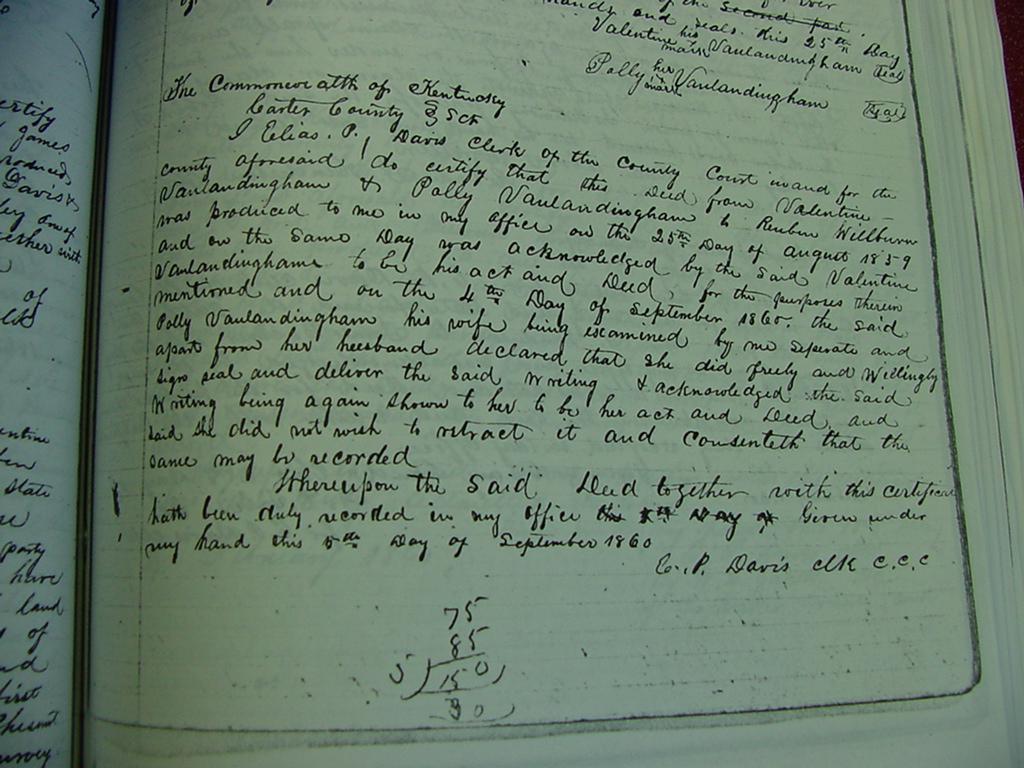 of the Second part.
hands and seals this 25th Day
Valentine his mark Vanlandingham Seal
Polly her mark Vanlandingham Seal
The Commonwealth of Kentucky
Carter County § Sct
I Elias. P. Davis Clerk of the County Court in and for the
county aforesaid do certify that this Deed from Valentine
Vanlandingham & Polly Vanlandingham to Reuben Willburn
was produced to me in my office on the 25th Day of august 1859
and on the Same Day was acknowledged by the Said Valentine
Vanlandinghame to be his act and Deed, for the purposes therein
mentioned and on the 4th Day of September 1860. the Said
Polly Vanlandingham his wife being examined by me Seperate and
apart from her heesband declared that She did freely and Willingly
Sign seal and deliver the Said Writing & acknowledged the Said
Writing being again Shown to her to be her act and Deed, and
Said She did not wish to retract it and Consenteth that the
Same may be recorded
Whereupon the Said Deed together with this certificat
hath been duly recorded in my office this Day of Given under
my hand this 5th Day of September 1860
E. P. Davis clk C.C.C
75
85
5) 150)
30)
ertify
James
roduced
Davis &
ether with
of
entine
State
party
have
land
of
first
survey